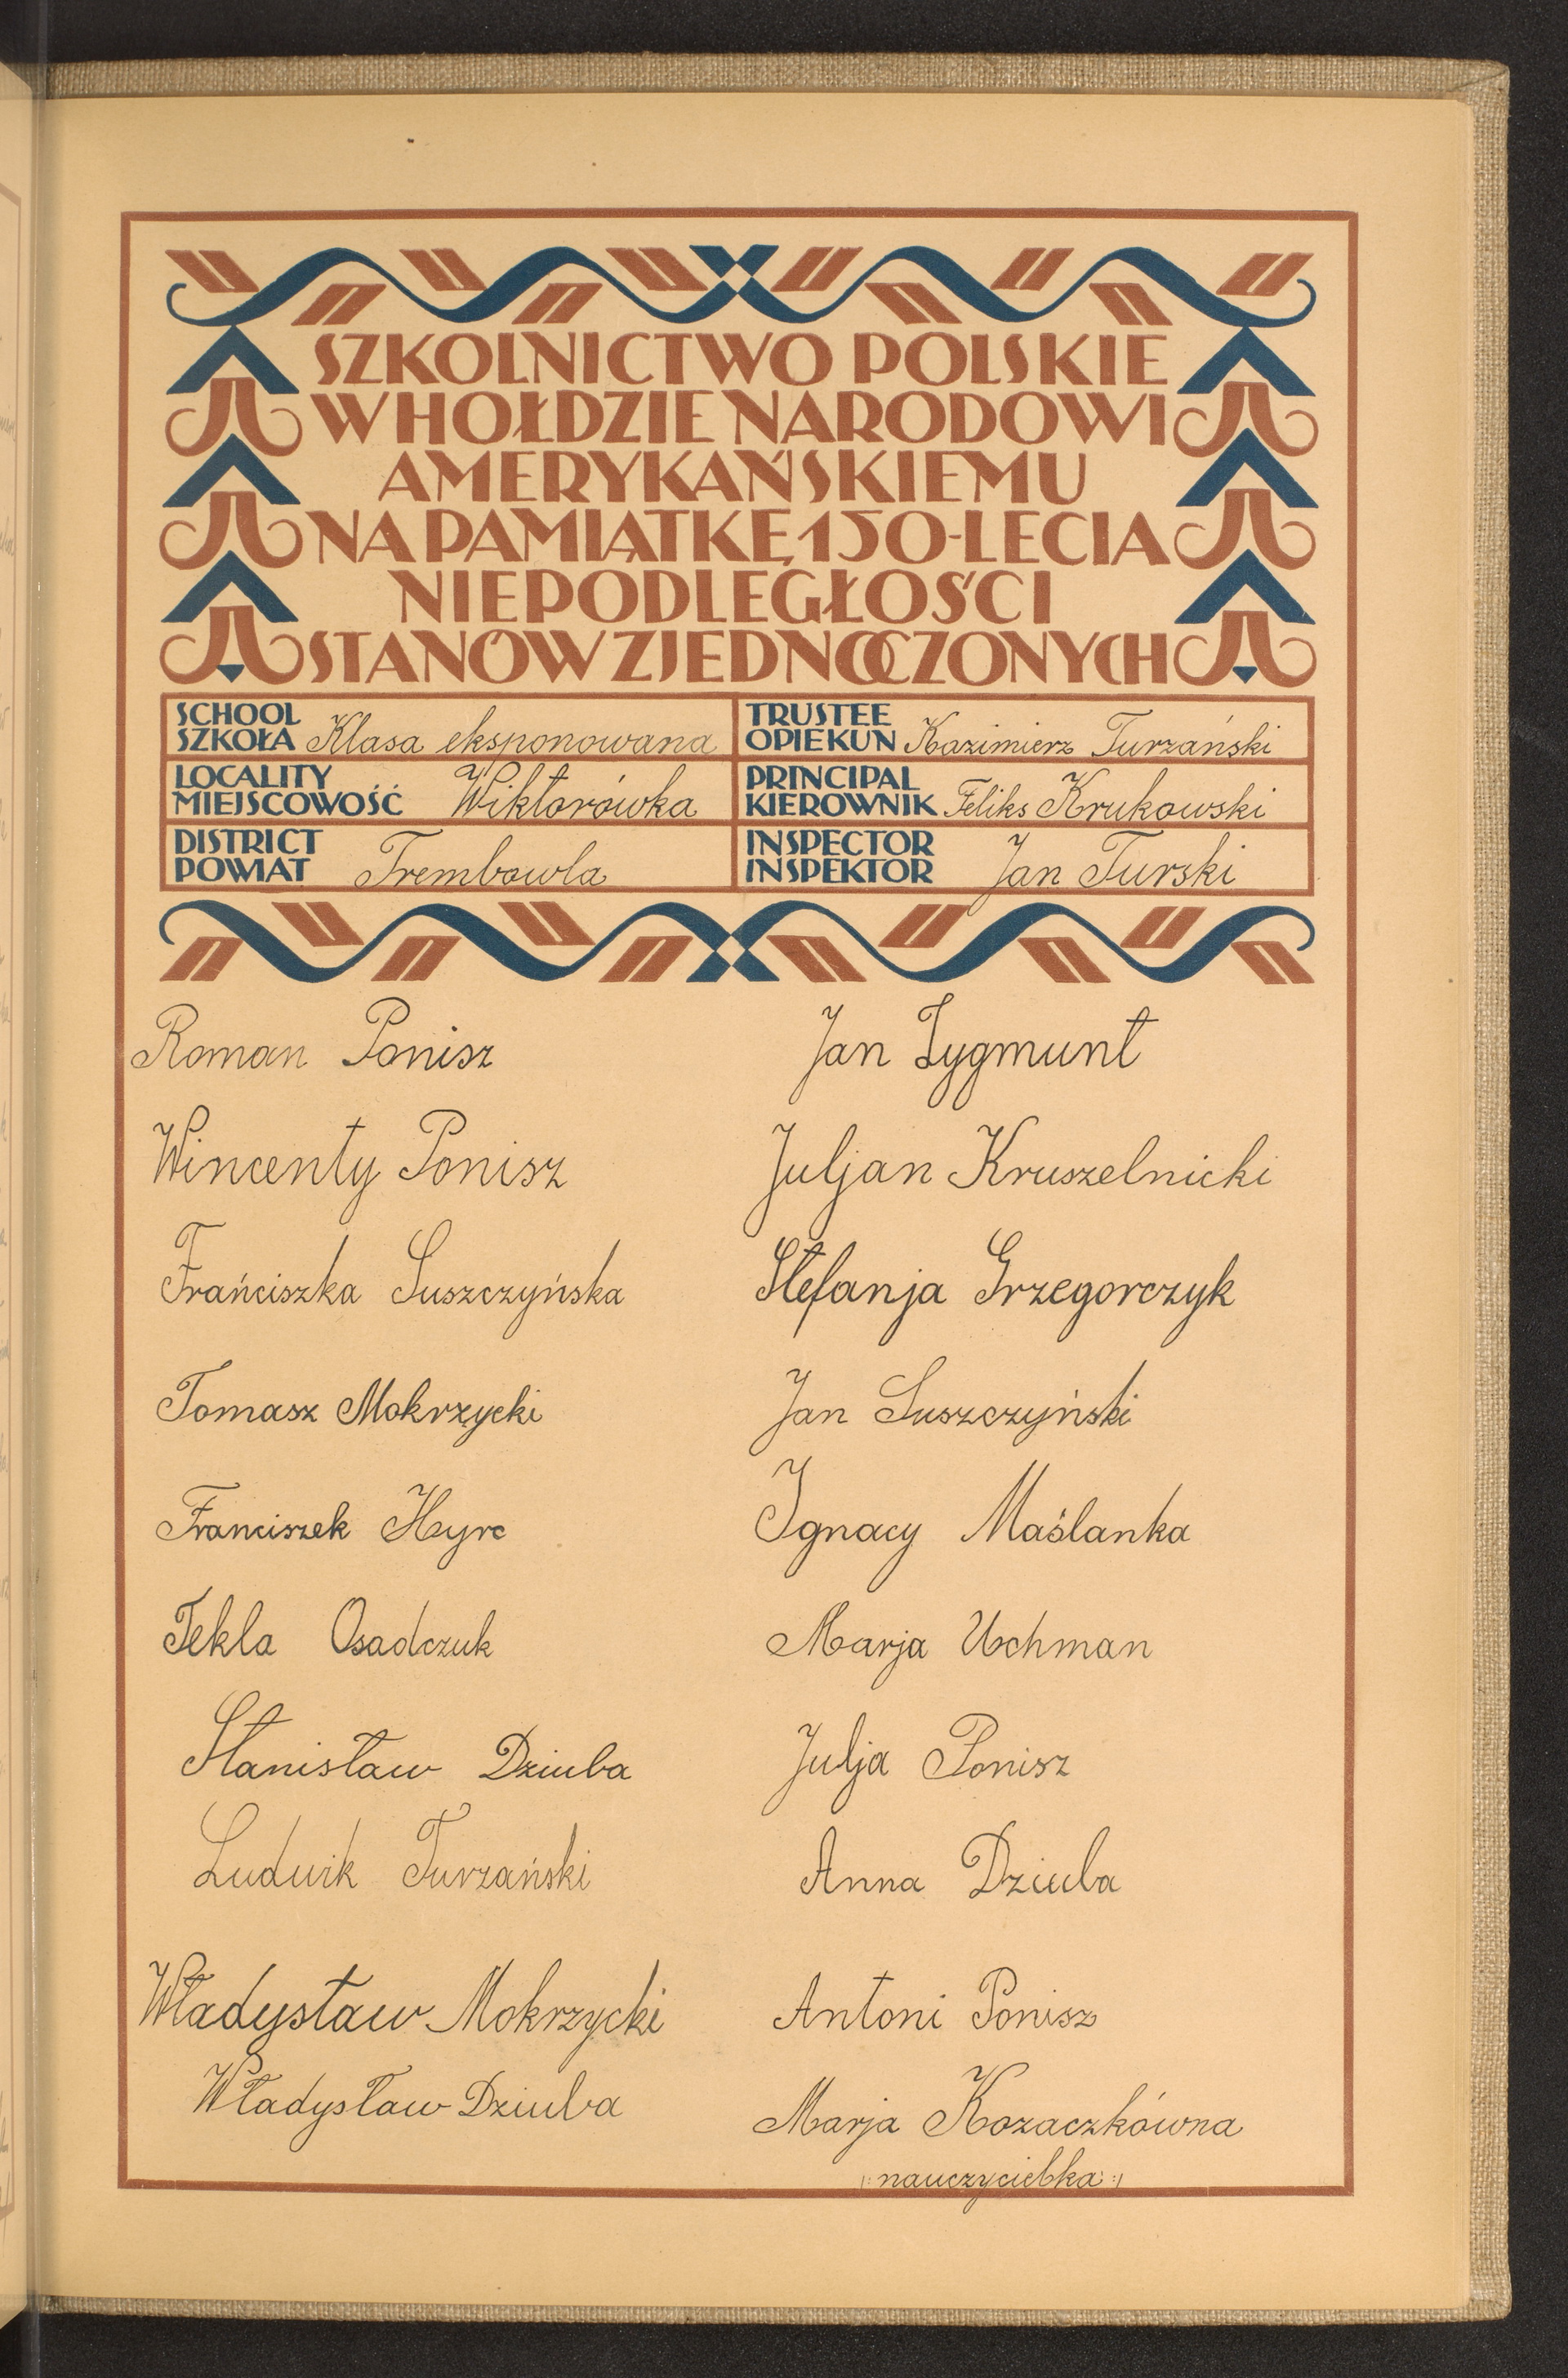 SZKOLNICTWO POLSKIE
W HOŁDZIE NARODOWI
AMERYKAŃSKIEMU
NA PAMIĄTKĘ 150-LECIA
NIEPODLEGŁOŚCI
STANÓW ZJEDNOCZONYCH
SCHOOL
SZKOŁA Klasa eksponowana
TRUSTEE
OPIEKUN Kazimierz Turzański
LOCALITY
MIEJSCOWOŚĆ Wiktorówka
PRINCIPAL
KIEROWNIK Feliks Krukowski
DISTRICT
POWIAT Trembowla
INSPECTOR
INSPEKTOR Jan Turski
Roman Ponisz
Wincenty Ponisz
Frańciszka Suszczyńska
Tomasz Mokrzycki
Franciszek Hyrc
Tekla Osadczuk
Stanisław Dziuba
Ludwik Turzański
Władysław Mokrzycki
Władysław Dziuba
Jan Zygmunt
Juljan Kruszelnicki
Stefanja Grzegorczyk
Jan Suszczyński
Ignacy Maślanka
Marja Uchman
Julja Ponisz
Anna Dziuba
Antoni Ponisz
Marja Kozaczkówna
/: nauczycielka :/